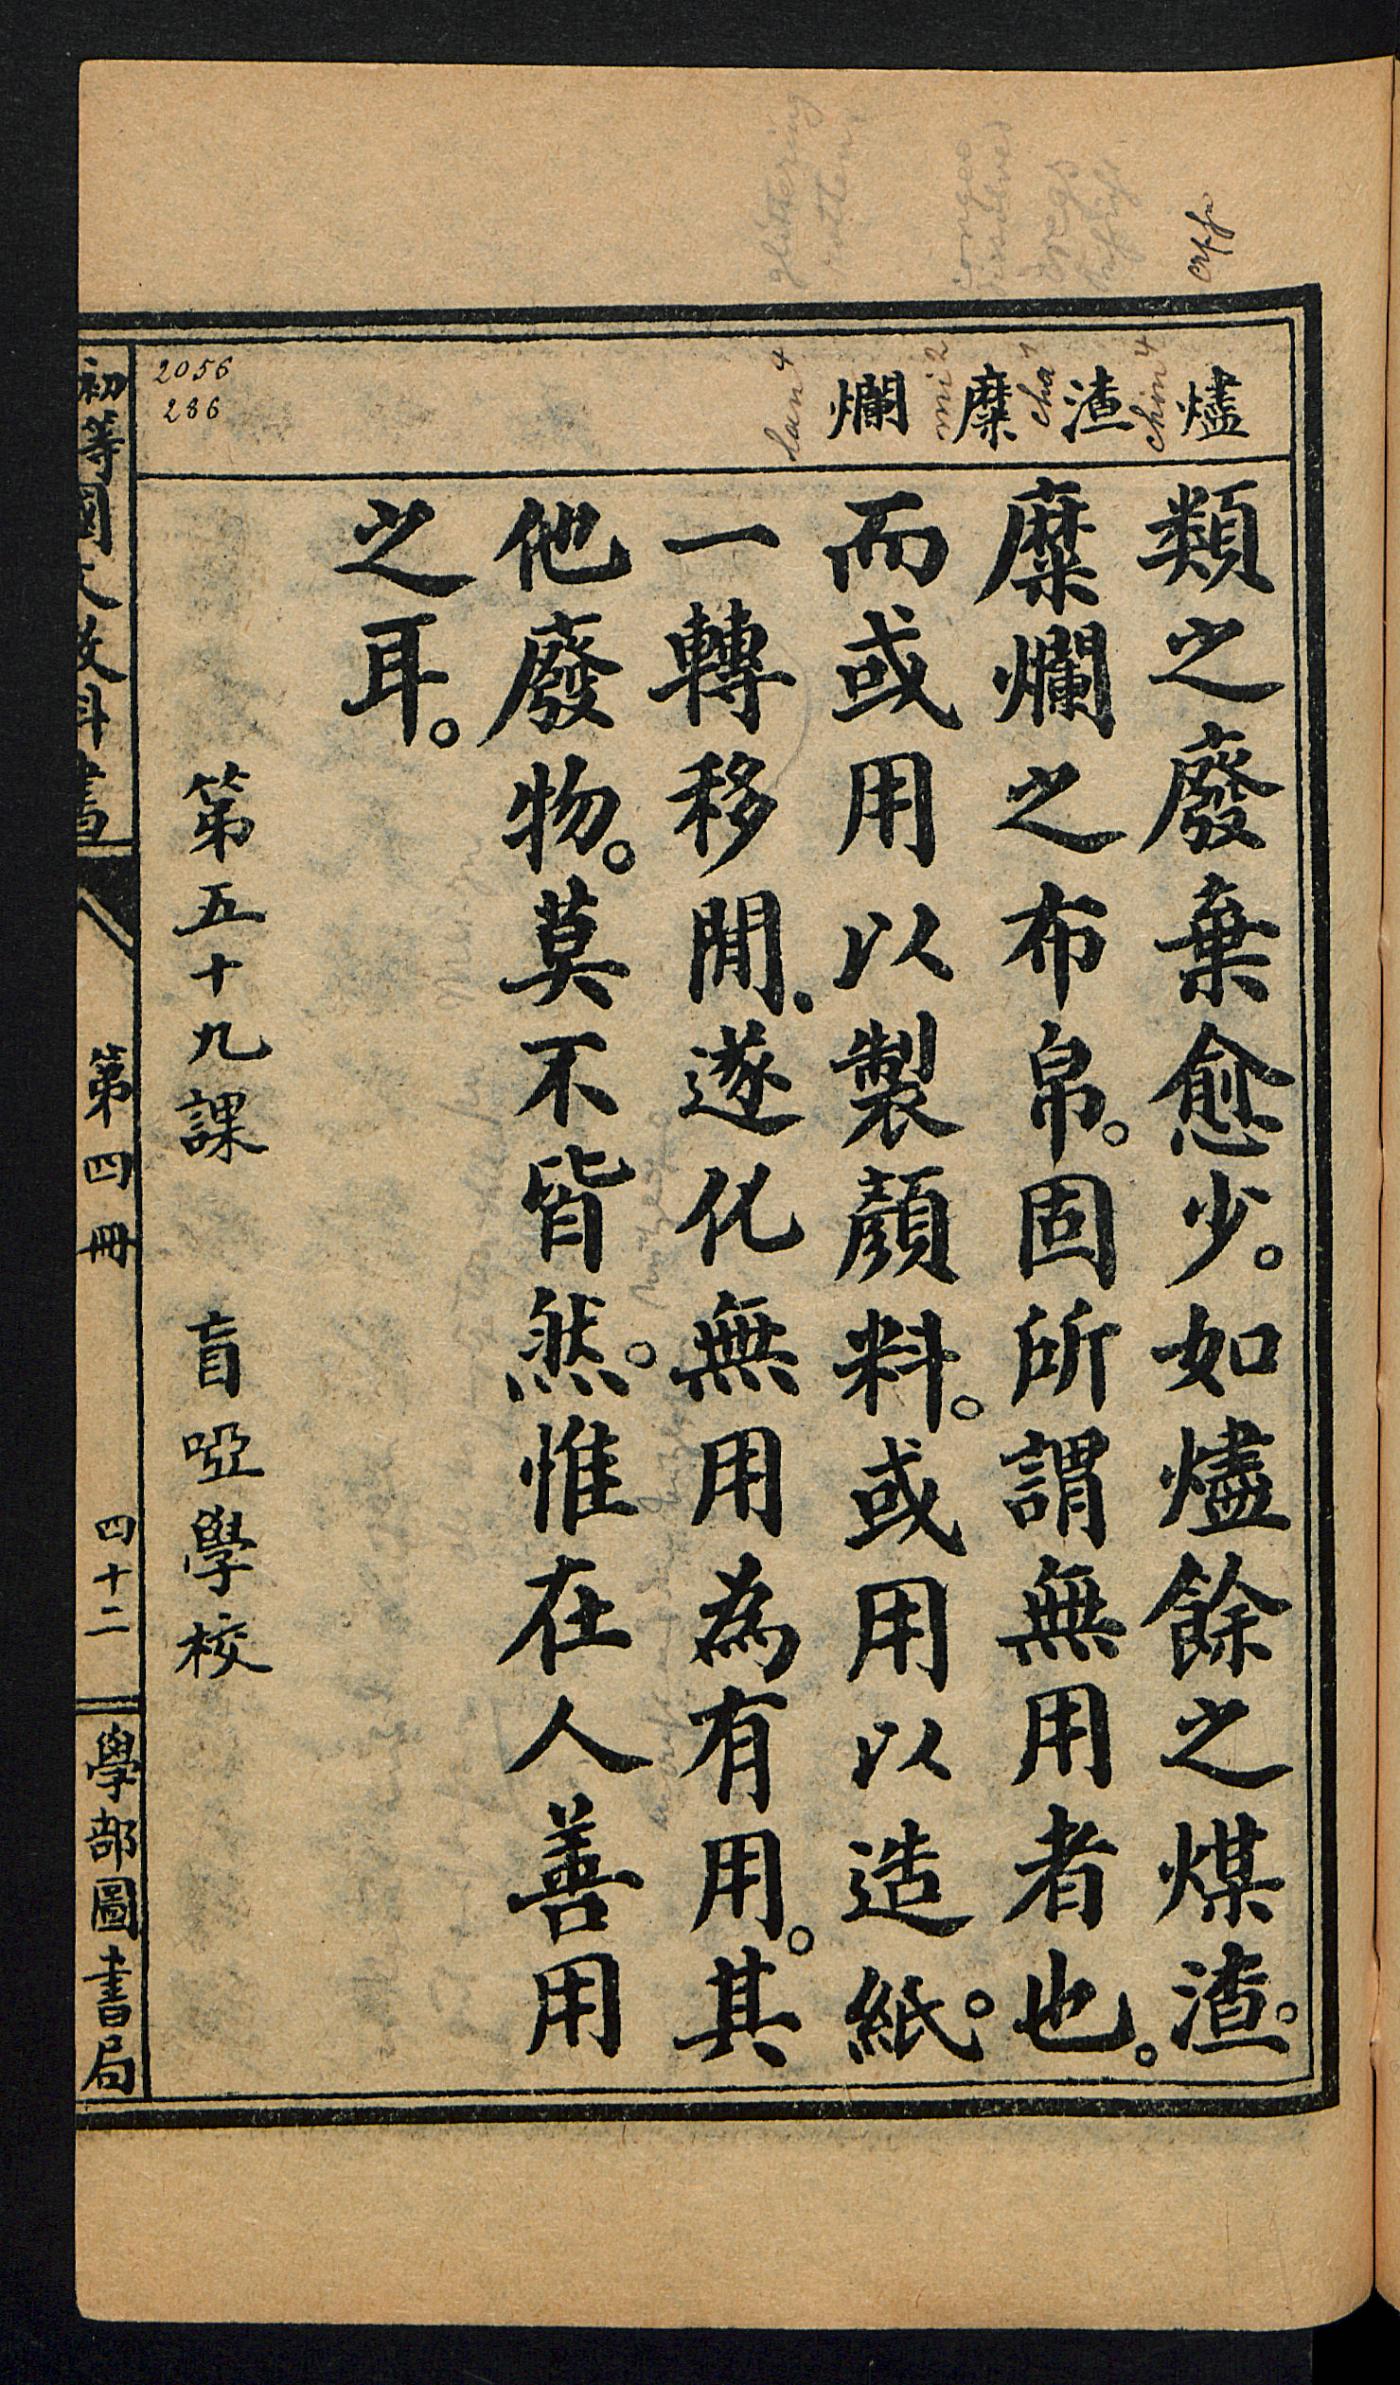 燼 渣 糜 爛
chin4 cha1 mi2 lan4
類之廢棄愈少。如燼餘之煤渣。
糜爛之布帛。固所謂無用者也。
而或用以製顏料。或用以造紙。
一轉移閒。遂化無用為有用。其
他廢物。莫不皆然。惟在人善用
之耳。
第五十九課 盲啞學校
2056
286
初等國文教科書 第四冊 四十二 學部圖書局
glittering
rotten